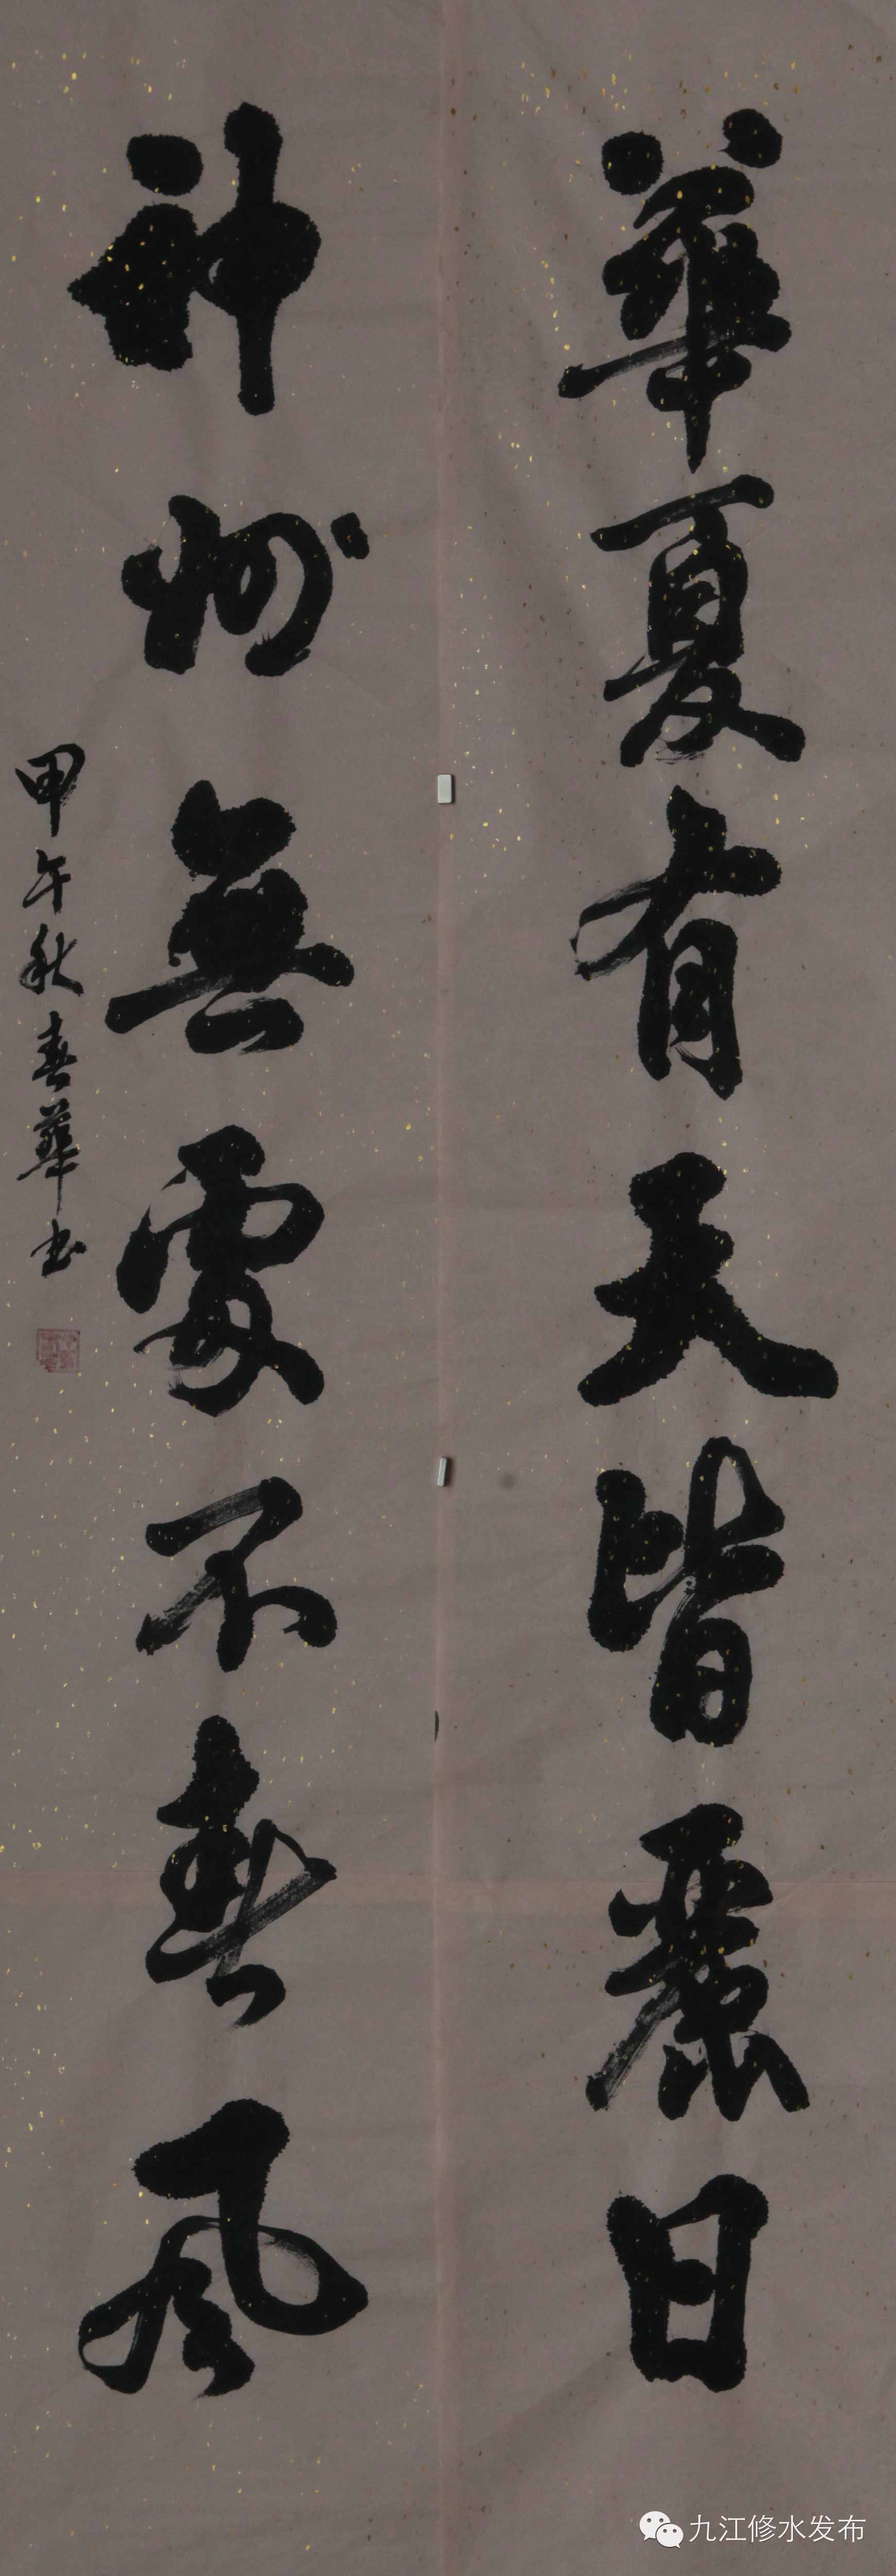 華夏有天皆麗日
神州無處不春風
甲午秋春華书
九江修水发布